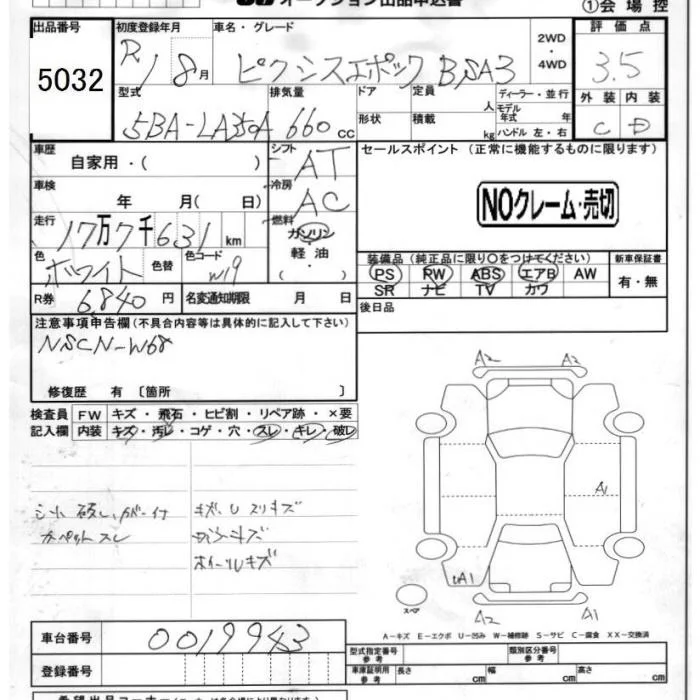 オークション出品申込書
①会場控
出品番号 5032
初度登録年月 R1 8月
車名・グレード ピクシスエポック B,SA3
2WD・4WD
評価点 3.5
外装 内装
C D
型式 5BA-LA350A
排気量 660cc
ドア 形状
定員 人
積載 kg
ディーラー・並行
モデル年式 年
ハンドル 左・右
車歴 自家用・( )
シフト AT
車検 年 月( 日)
冷房 AC
走行 17万7千631km
燃料 ガソリン・軽油・( )
色 ホワイト 色替
色コード W19
R券 6,840円
名変通知期限 月 日
セールスポイント (正常に機能するものに限ります)
NOクレーム・売切
装備品 (純正品に限り○をつけてください)
新車保証書 有・無
PS PW ABS エアB AW
SR ナビ TV カワ
後日品
注意事項申告欄(不具合内容等は具体的に記入して下さい)
NSCN-W68
修復歴 有 〔箇所 〕
検査員記入欄
FW キズ・飛石・ヒビ割・リペア跡・×要
内装 キズ・汚レ・コゲ・穴・スレ・キレ・破レ
シート破レ、カバー付
カーペットスレ
キズ、U スリキズ
ホイールキズ
A2 A2
A1
A1
A2 A1
スペア
A－キズ E－エクボ U－凹み W－補修跡 S－サビ C－腐食 XX－交換済
車台番号 0019943
登録番号
型式指定番号 参考
類別区分番号 参考
車庫証明用 参考 長さ cm 幅 cm 高さ cm